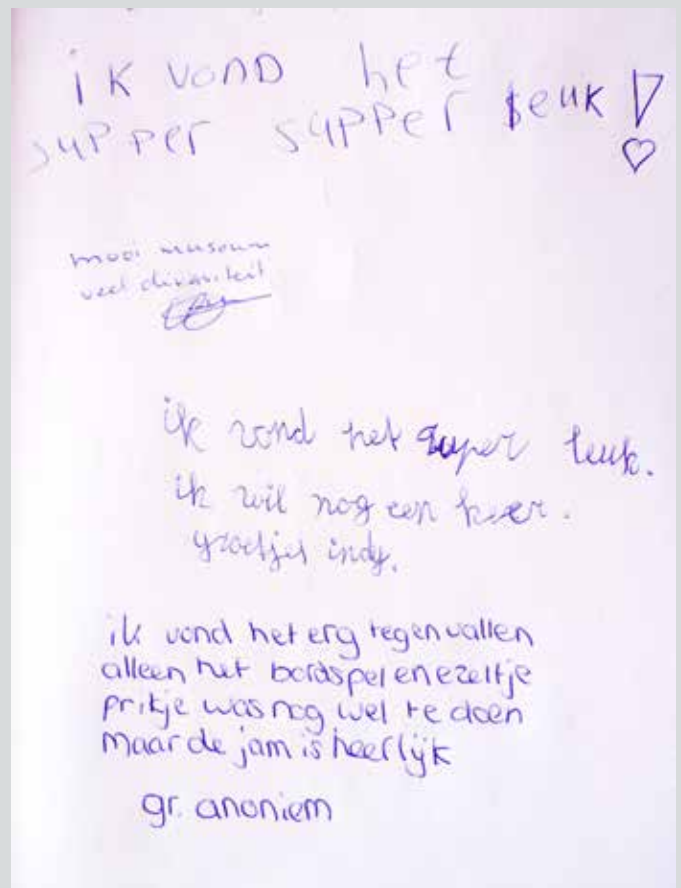 ik vond het
supper supper leuk!
mooi museum
veel divirsiteit
ik vond het super leuk.
ik wil nog een keer.
groetjes indy.
ik vond het erg tegenvallen
alleen het bordspel en ezeltje
prikje was nog wel te doen
maar de jam is heerlijk
gr. anoniem